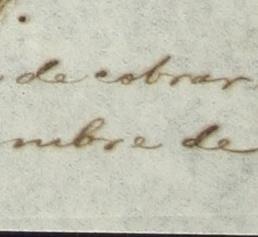 de cobrar
mbre de